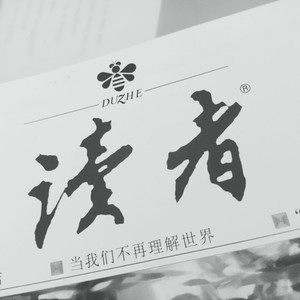 DUZHE
读者®
当我们不再理解世界